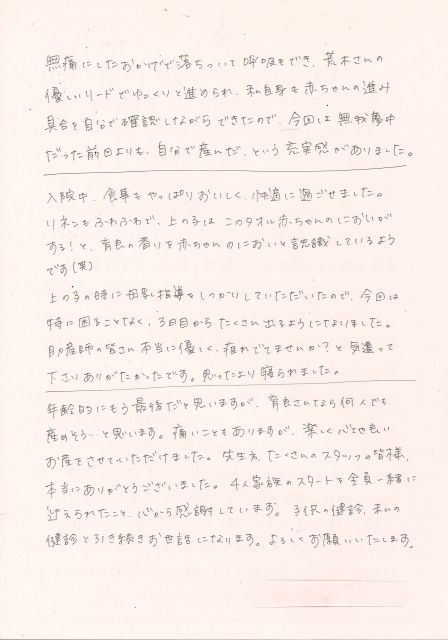 無痛にしたおかげで落ちついて呼吸もでき、荒木さんの
優しいリードでゆっくりと進められ、私自身も赤ちゃんの進み
具合を自分で確認しながらできたので、今回は無我夢中
だった前回よりも、自分で産んだ、という充実感がありました。
入院中、食事もやっぱりおいしく、快適に過ごせました。
リネンもふわふわで、上の子は このタオル赤ちゃんのにおいが
する！と、育良の香りを赤ちゃんのにおいと認識しているよう
です(笑)
上の子の時に母乳指導をしっかりしていただいたので、今回は
特に困ることなく、3日目からたくさん出るようになりました。
助産師の皆さん本当に優しく、疲れでてませんか？と気遣って
下さりありがたかったです。思ったより寝られました。
年齢的にもう最後だと思いますが、育良さんなら何人でも
産めそう…と思います。痛いこともありますが、楽しく心地良い
お産をさせていただけました。先生方、たくさんのスタッフの皆様、
本当にありがとうございました。4人家族のスタートを全員一緒に
迎えられたこと、心から感謝しています。子供の健診、私の
健診と引き続きお世話になります。よろしくお願いいたします。